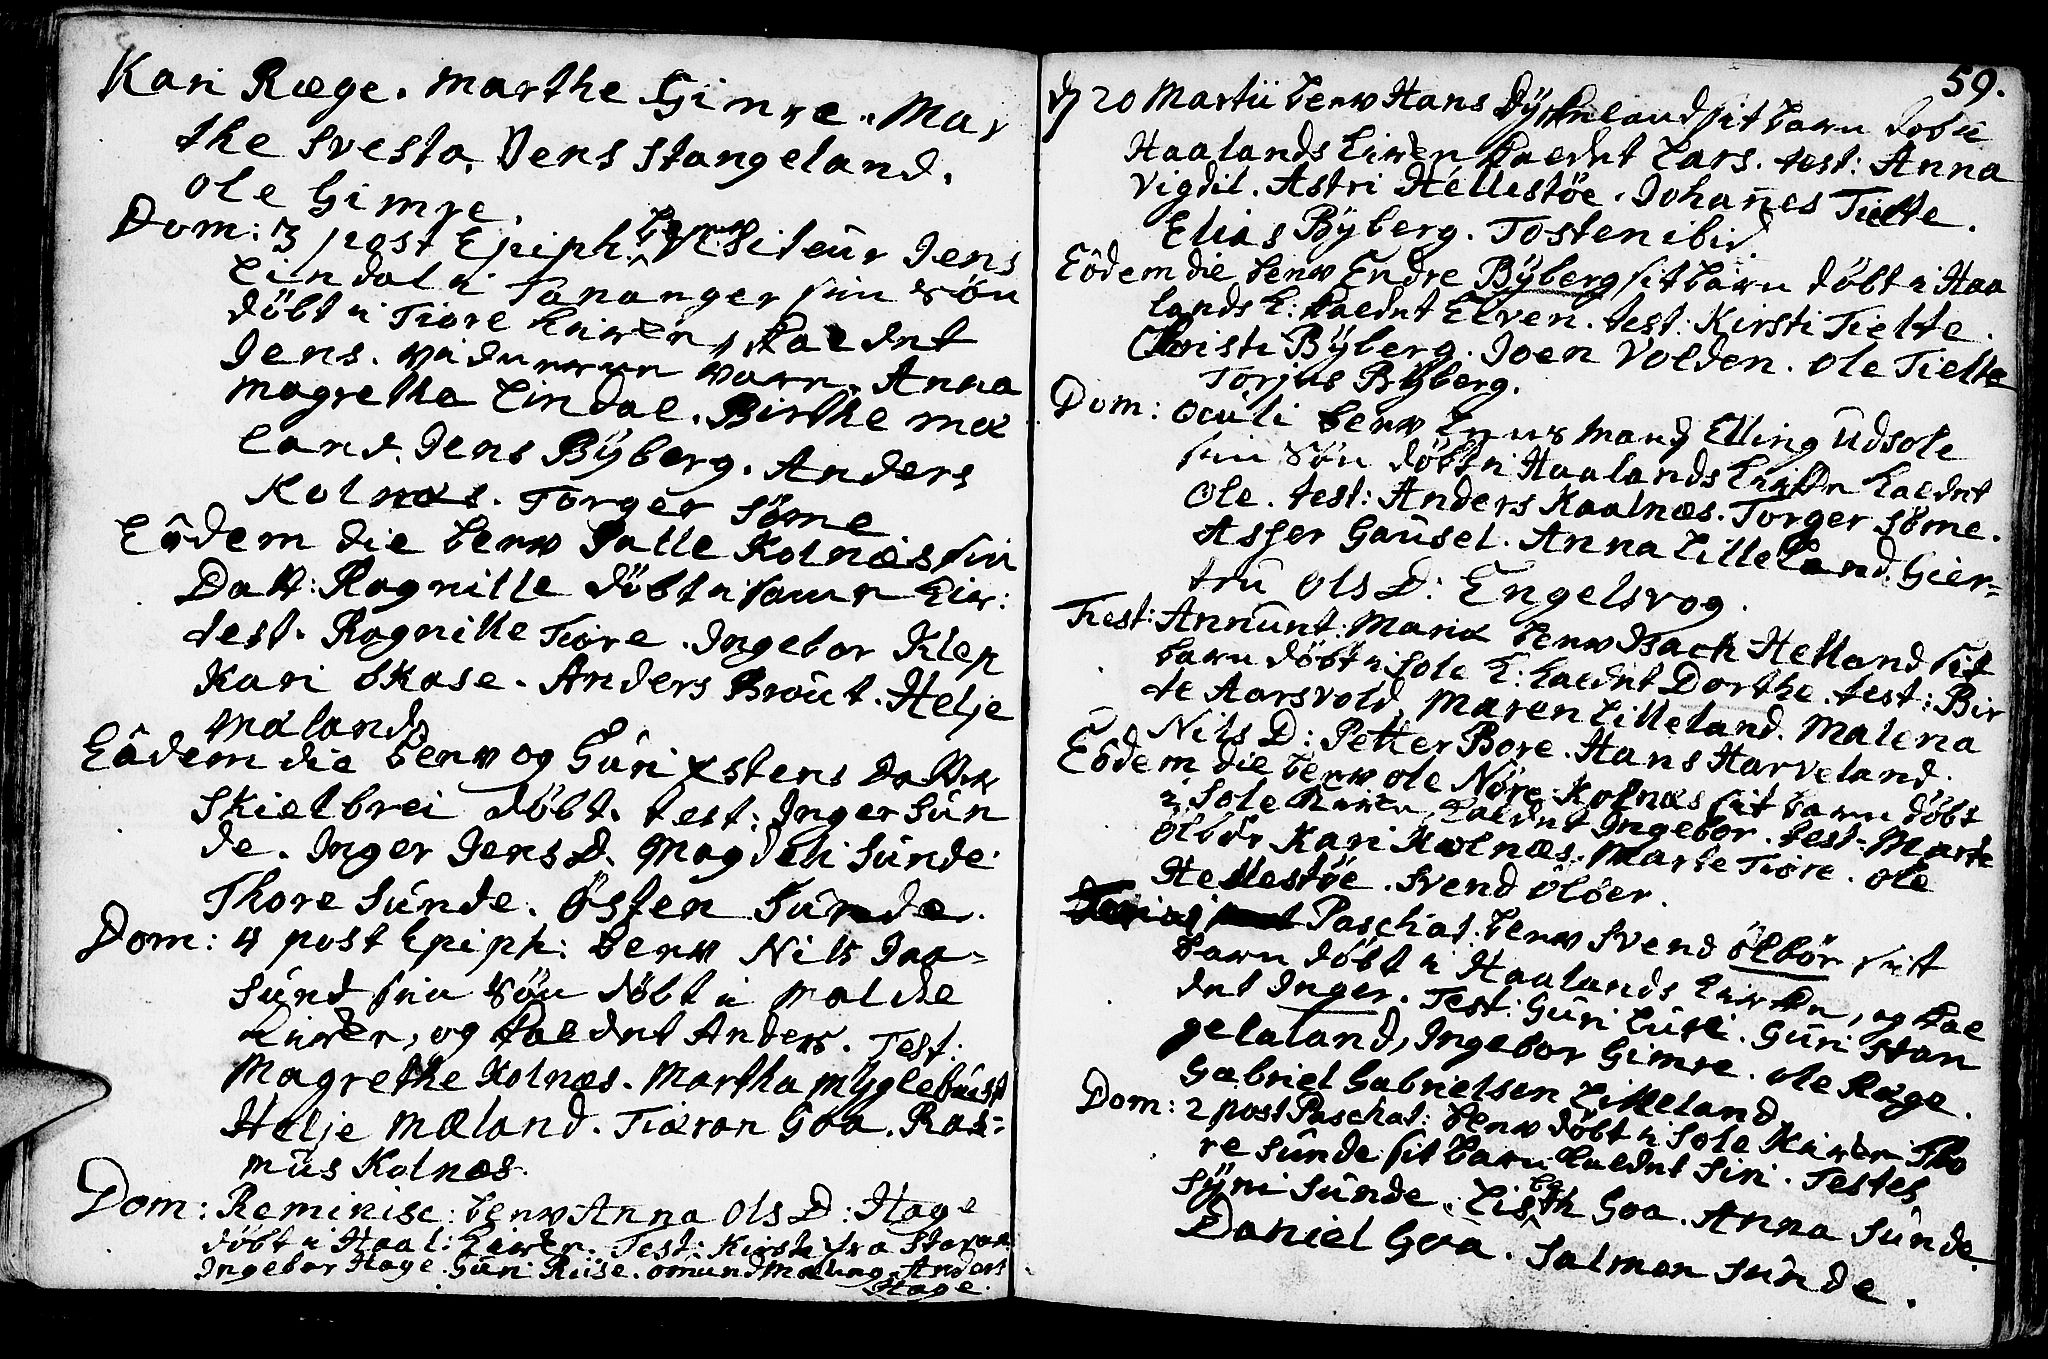 Kari Ræge. Marthe Gimre. Mar
the Svesta. Jens Stangeland.
Ole Gimre.
Dom: 3 post Epiph: blev Visiteur Jens
Lindal i Tananger sin Søn
döbt i Tiore Kircken, kaldet
Jens. Vidnerne vare. Anna
Magrethe Lindal. Birthe Mæ
land. Jens Bÿberg. Anders
Kolnæs. Torger Sôme
Eôdem die blev Palle Kolnæs sin
Datt: Ragnille döbt i samme Kir:
test. Ragnille Tiôre. Ingebor Klep
Kari Skase. Anders Broût. Helje
Mæland
Eôdem die blev og Gûri Xstens Datter
Skielbrei döbt. test: Inger Sûn
de. Inger Jens D. Magdeli Sûnde.
Thore Sûnde. Östen Sûnde.
Dom: 4 post Epiph: blev Nils Jaa-
sûnd sin Søn döbt i Malde
Kircken, og kaldet Anders. Test.
Magrethe Kolnæs. Martha Mÿglebûst
Helje Mæland. Tiæran Goa. Ras-
mûs Kolnæs.
Dom: Reminisc: blev Anna Ols D: Hage
döbt i Haal: Kircken. Test: Kirsti fra Stavan
Ingebor Hage. Gûri Rûse. Omûnd Mæling. Anders
Hage.
59.
d 20 Martii blev Hans Dÿsteland sit barn dobt i
Haalands Kircken kaldet Lars. test: Anna
Vigdil. Astri Hellestöe. Johañes Tielte.
Elias Bÿberg. Tosten ibid
Eôdem die blev Endre Bÿberg sit barn döbt i Haa
lands K: kaldet Elven. test: Kirsti Tielte.
Christi Bÿberg. Joen Volden. Ole Tielte
Torjus Bÿberg.
Dom: Ocûli blev Lensmand Elling Ûdsole
sin Søn döbt i Haalands Kircken kaldet
Ole. test: Anders Kaalnæs. Torger Sôme.
Asser Gaûsel. Anna Lilleland. Gier-
trû Ols D: Engelsvog.
Fest: Annûnt: Mariæ blev Isach Helland sit
barn döbt i Sole K: kaldet Dorthe. test: Bir
te Aarsvold. Maren Lilleland. Malena
Nils D: Petter Bore. Hans Harveland.
Eôdem die blev Ole Nôre-Kolnæs sit barn döbt
i Sole Kircken, kaldet Ingebor. test: Marte
Ölbör Kari Kolnæs. Marte Tiore. Ole
Hellestöe. Svend Ölöer.
Paschat. blev Svend Ölbör sitt
barn döbt i Haalands Kircken, og kal
det Inger. Test: Gûri Lûsi. Gûri Stan
gelaland, Ingebor Gimre. Ole Ræge.
Gabriel Gabrielsen Lilleland
Dom: 2 post Paschat: blev döbt i Sole Kircken Tho
re Sûnde sit barn kaldet Siri. Testes
Sÿni Sûnde. Lisbeth Goa. Anna Sûnde.
Daniel Goa. Salmon Sûnde.